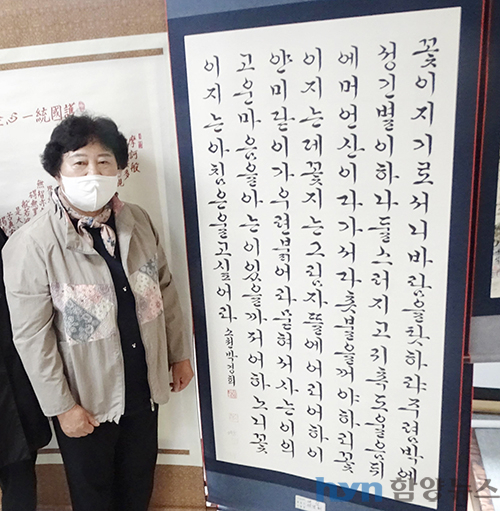 꽃이지기로서니바람을탓하랴주렴밖에
성긴별이하나둘스러지고귀촉도울음뒤
에머언산이다가서다촛불을꺼야하리꽃
이지는데꽃지는그림자뜰에어리어하이
얀미닫이가우련붉어라묻혀서사는이의
고운마음을아는이있을까저어하노니꽃
이지는아침은울고싶어라 박경희
護國統一心
hvn 함양뉴스